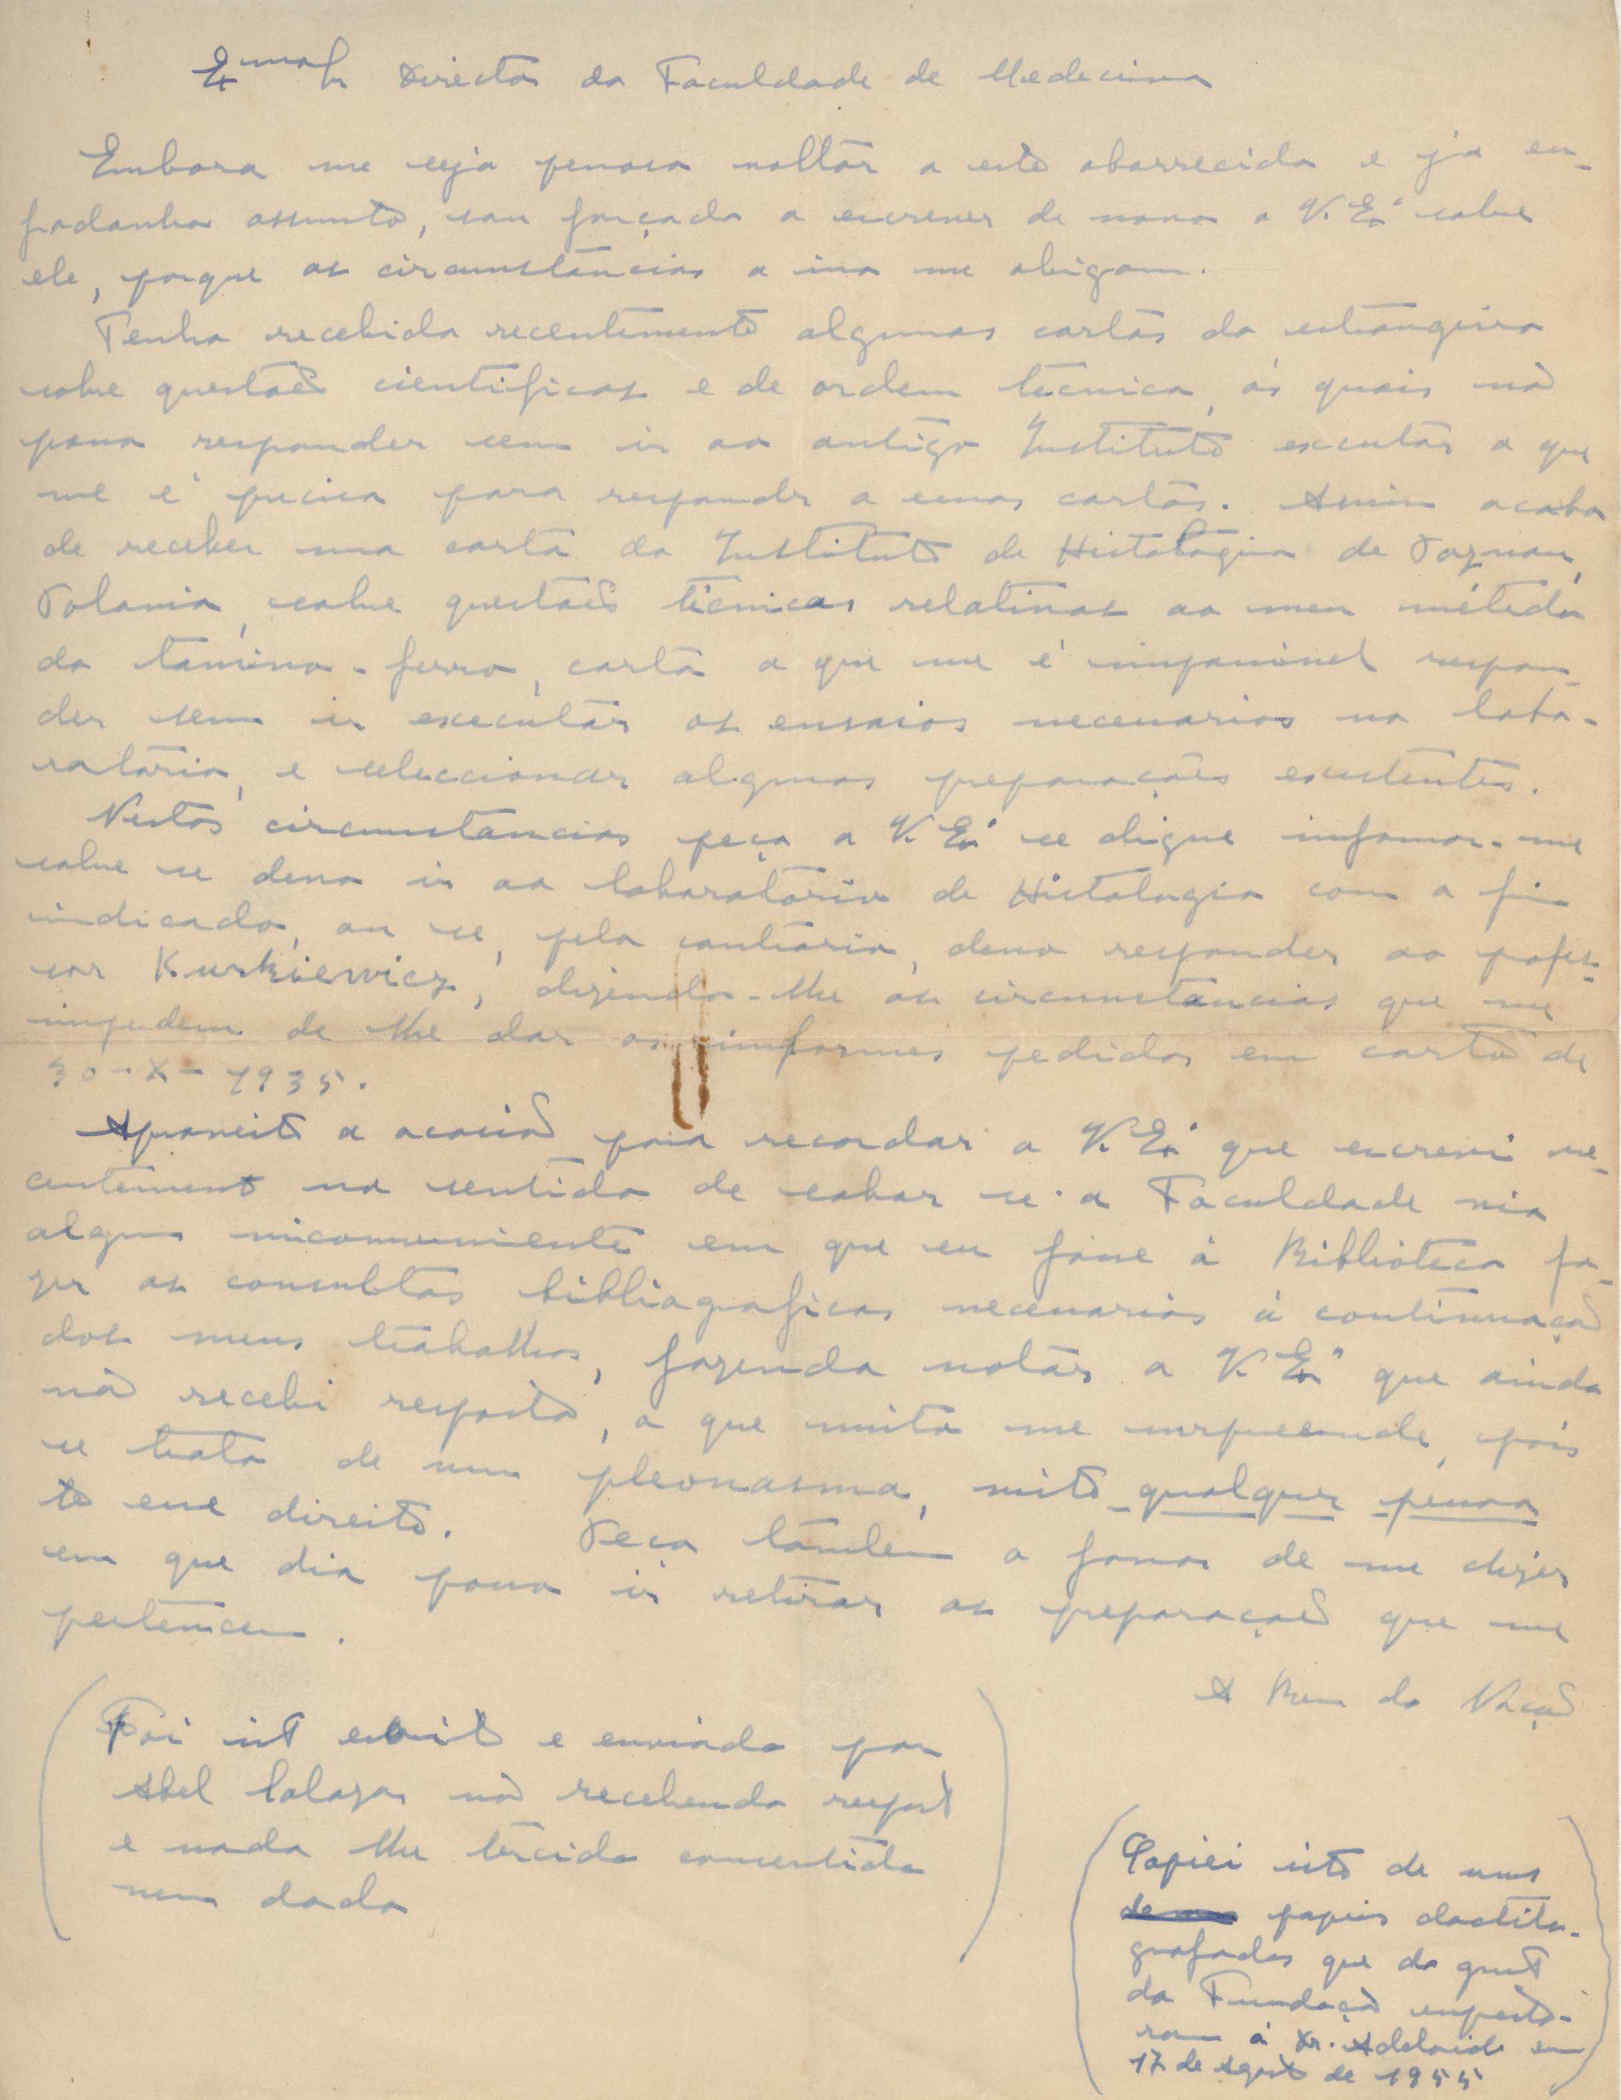 Exmo Sr Director da Faculdade de Medecina
Embora me seja penoso voltar a este aborrecido e já en-
fadonho assunto, sou forçado a escrever de novo a V. Exª sobre
ele, porque as circunstâncias a isso me obrigam.
Tenho recebido recentemente algumas cartas do estrangeiro
sobre questões cientificas e de ordem técnica, ás quais não
posso responder sem ir ao antigo Instituto executar o que
me é preciso para responder a essas cartas. Assim acabo
de receber uma carta do Instituto de Histologia de Poznan,
Polonia, sobre questões técnicas relativas ao meu método
do tanino-ferro, carta a que me é impossivel respon-
der sem ir executar os ensaios necessarios no labo-
ratório, e seleccionar algumas preparações existentes.
Nestas circunstancias peço a V. Exª se digne informar-me
sobre se devo ir ao laboratório de Histologia com o fim
indicado, ou se, pelo contrário, devo responder ao profes-
sor Kurkiewicz, dizendo-lhe as circunstancias que me
impedem de lhe dar os informes pedidos em carta de
30-X-1935.
Aproveito a ocasião para recordar a V. Exª que escrevi re-
centemente no sentido de saber se a Faculdade via
algum inconveniente em que eu fosse á Biblioteca fa-
zer as consultas bibliograficas necessarias á continuação
dos meus trabalhos, fazendo notar a V. Exª que ainda
não recebi resposta, o que muito me surpreende, pois
se trata de um pleonasmo, visto qualquer pessoa
ter esse direito. Peço também o favor de me dizer
em que dia posso ir retirar as preparações que me
pertencem.
A Bem da Nação
(Foi isto escrito e enviado por
Abel Salazar não recebendo resposta
e nada lhe tendo consentido
nem dado)
(Copiei isto de uns
papeis dactilo-
grafados que da gente
da Fundação
á Dr. Adelaide em
17 de Agosto de 1955)